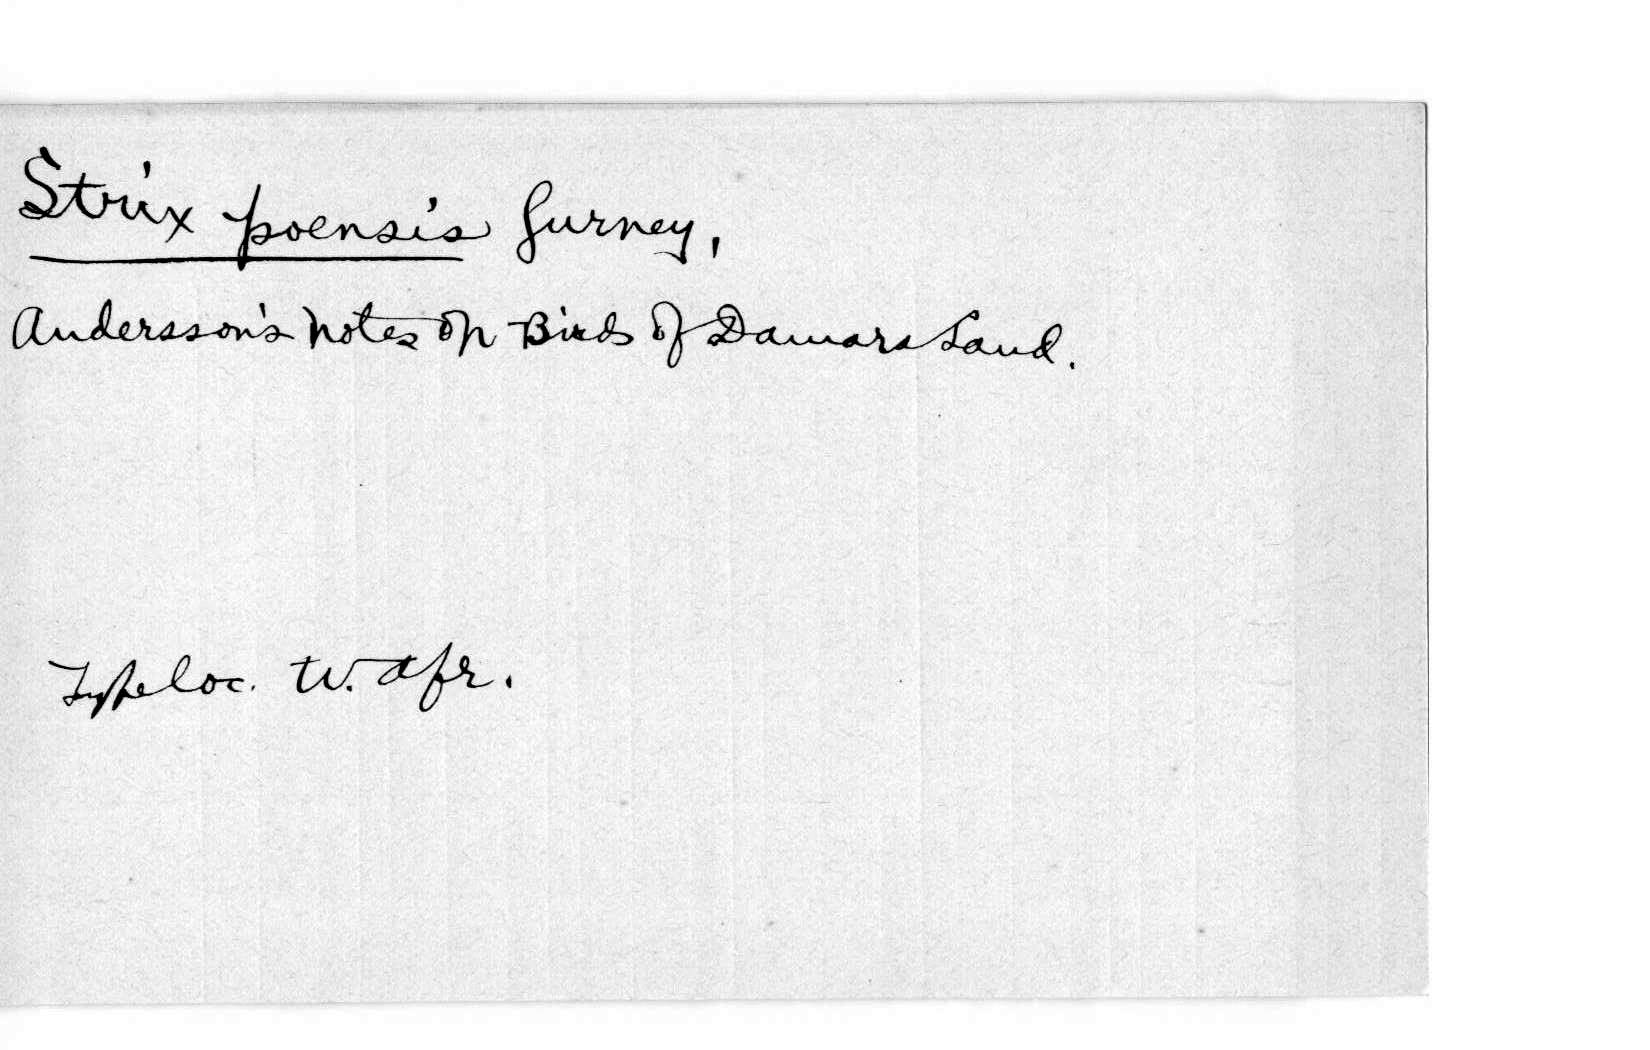 Strix poensis Gurney,
Andersson's Notes on Birds of Damara Land.
Type loc. W. Afr.